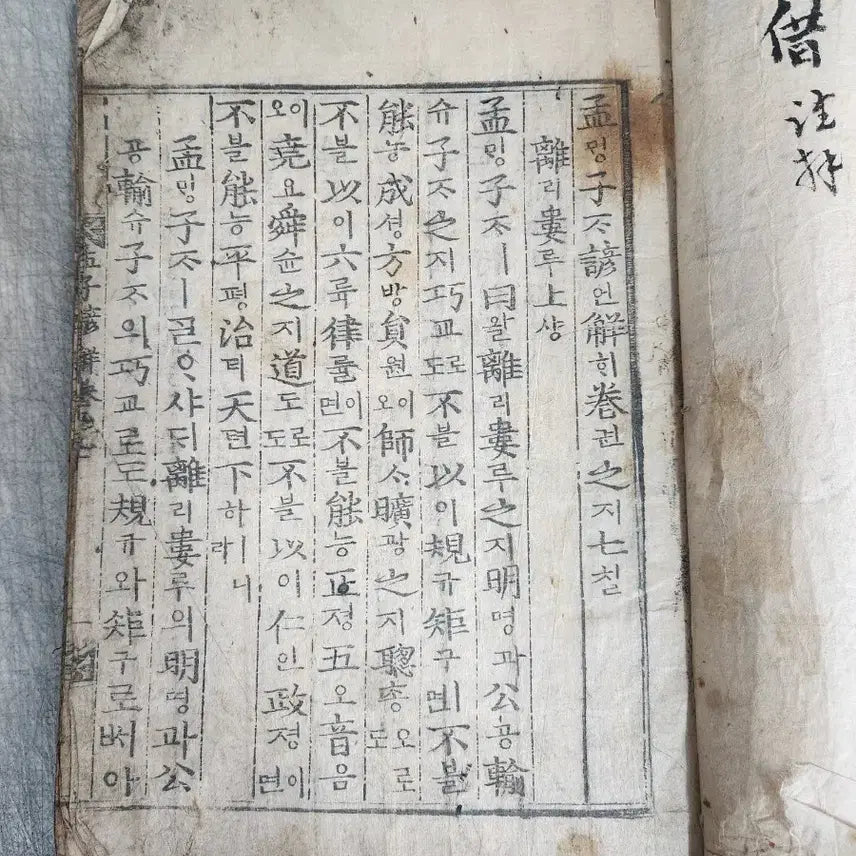 借
孟ᄆᆡᆼ子ᄌᆞ諺언解ᄒᆡ卷권之지七칠
離리婁루上샹
孟ᄆᆡᆼ子ᄌᆞㅣ曰왈離리婁루之지明명과公공輸
슈子ᄌᆞ之지巧교로도不블以이規규矩구면不블
能능成셩方방員원이오師ᄉᆞ曠광之지聰총오로도
不블以이六륙律률이면不블能능正졍五오音음
이오堯요舜슌之지道도로도不블以이仁인政졍이면
不블能능平평治티天텬下하ㅣ니라
孟ᄆᆡᆼ子ᄌᆞㅣᄀᆞᆯᄋᆞ샤ᄃᆡ離리婁루의明명과公
공輸슈子ᄌᆞ의巧교로도規규와矩구로ᄡᅥ아
孟子諺解卷之七